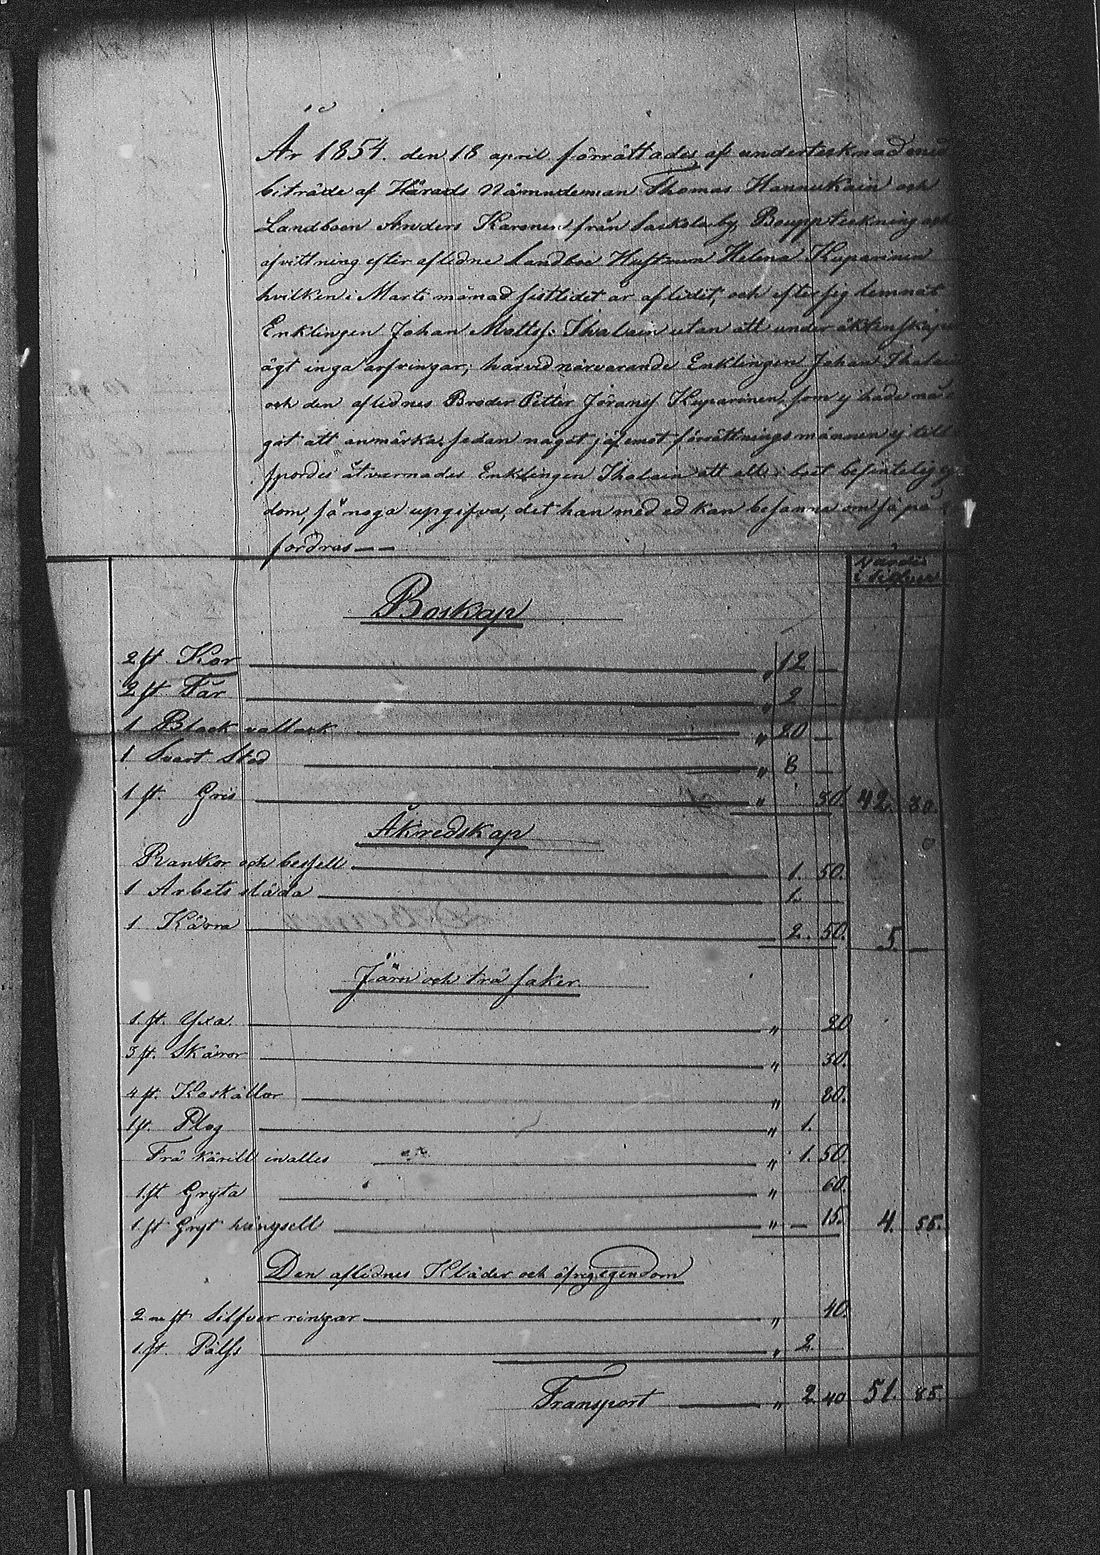 År 1854. den 18 april förrättades af undertecknad med
biträde af Härads Nämndeman Thomas Hannukain och
Landboen Anders Karonen från Saikola by Boupptekning och
afvittning efter aflidne Landboe Hustrun Helena Kuparinen
hvilken i Marti månad sistlidet år aflidet, och efter sig lemnat
Enklingen Johan Mattss: Ihalain utan att under äktenskapet
ägt inga arfvingar, härvid närvarande Enklingen Johan Ihalain
och den aflidnes Broder Petter Jöranss Kuparinen, som ej hade nå
got att anmärka, sedan något jäf emot förrättningsmännen ej till
spordes åtvarnades Enklingen Ihalain att allt i boet befinteligt egen
dom, så noga uppgifva, det han med ed kan besanna om så på
fordras — —
Värde
i Silfver
Boskap
2 st Kor „ 12 —
2 st Får „ 2 —
1 Black vallack „ 20 —
1 Svart Sto „ 8 —
1 st. Gris „ 80. 42. 80.
Åkredskap
Rankor och bessell 1. 50.
1 Arbets släda 1. —
1 Kärra 2. 50. 5. —
Järn och trä saker
1 st. Yxa „ 20
3 st. Skäror „ 30.
4 st. Koskällor „ 80.
1 st. Plog „ 1.
Trä kärill inalles „ 1. 50.
1 st Gryta „ 60.
1 st Gryt hängsell „ — 15. 4. 55.
Den aflidnes Kläder och öfrig egendom
2 st Silfver ringar „ 40.
1 st Päls „ 2.
Transport „ 2 40 51. 85.